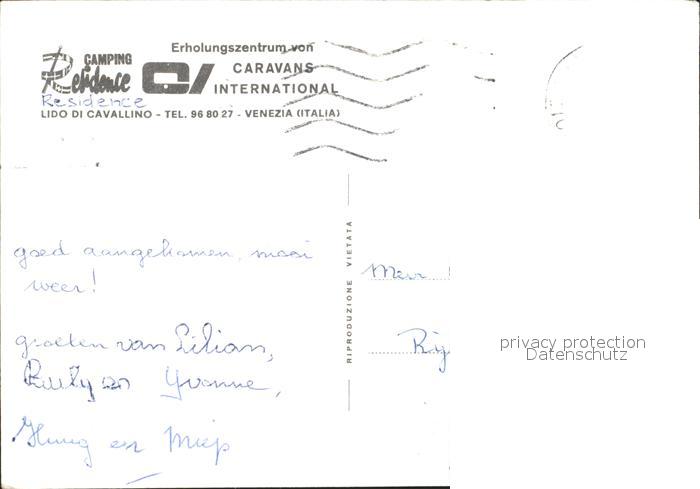 Erholungszentrum von
CAMPING
Residence
CARAVANS
INTERNATIONAL
Residence
LIDO DI CAVALLINO - TEL. 96 80 27 - VENEZIA (ITALIA)
goed aangekomen, mooi
weer!
groeten van Lilian,
en Yvonne,
en Miep
RIPRODUZIONE VIETATA
Mevr
privacy protection
Datenschutz